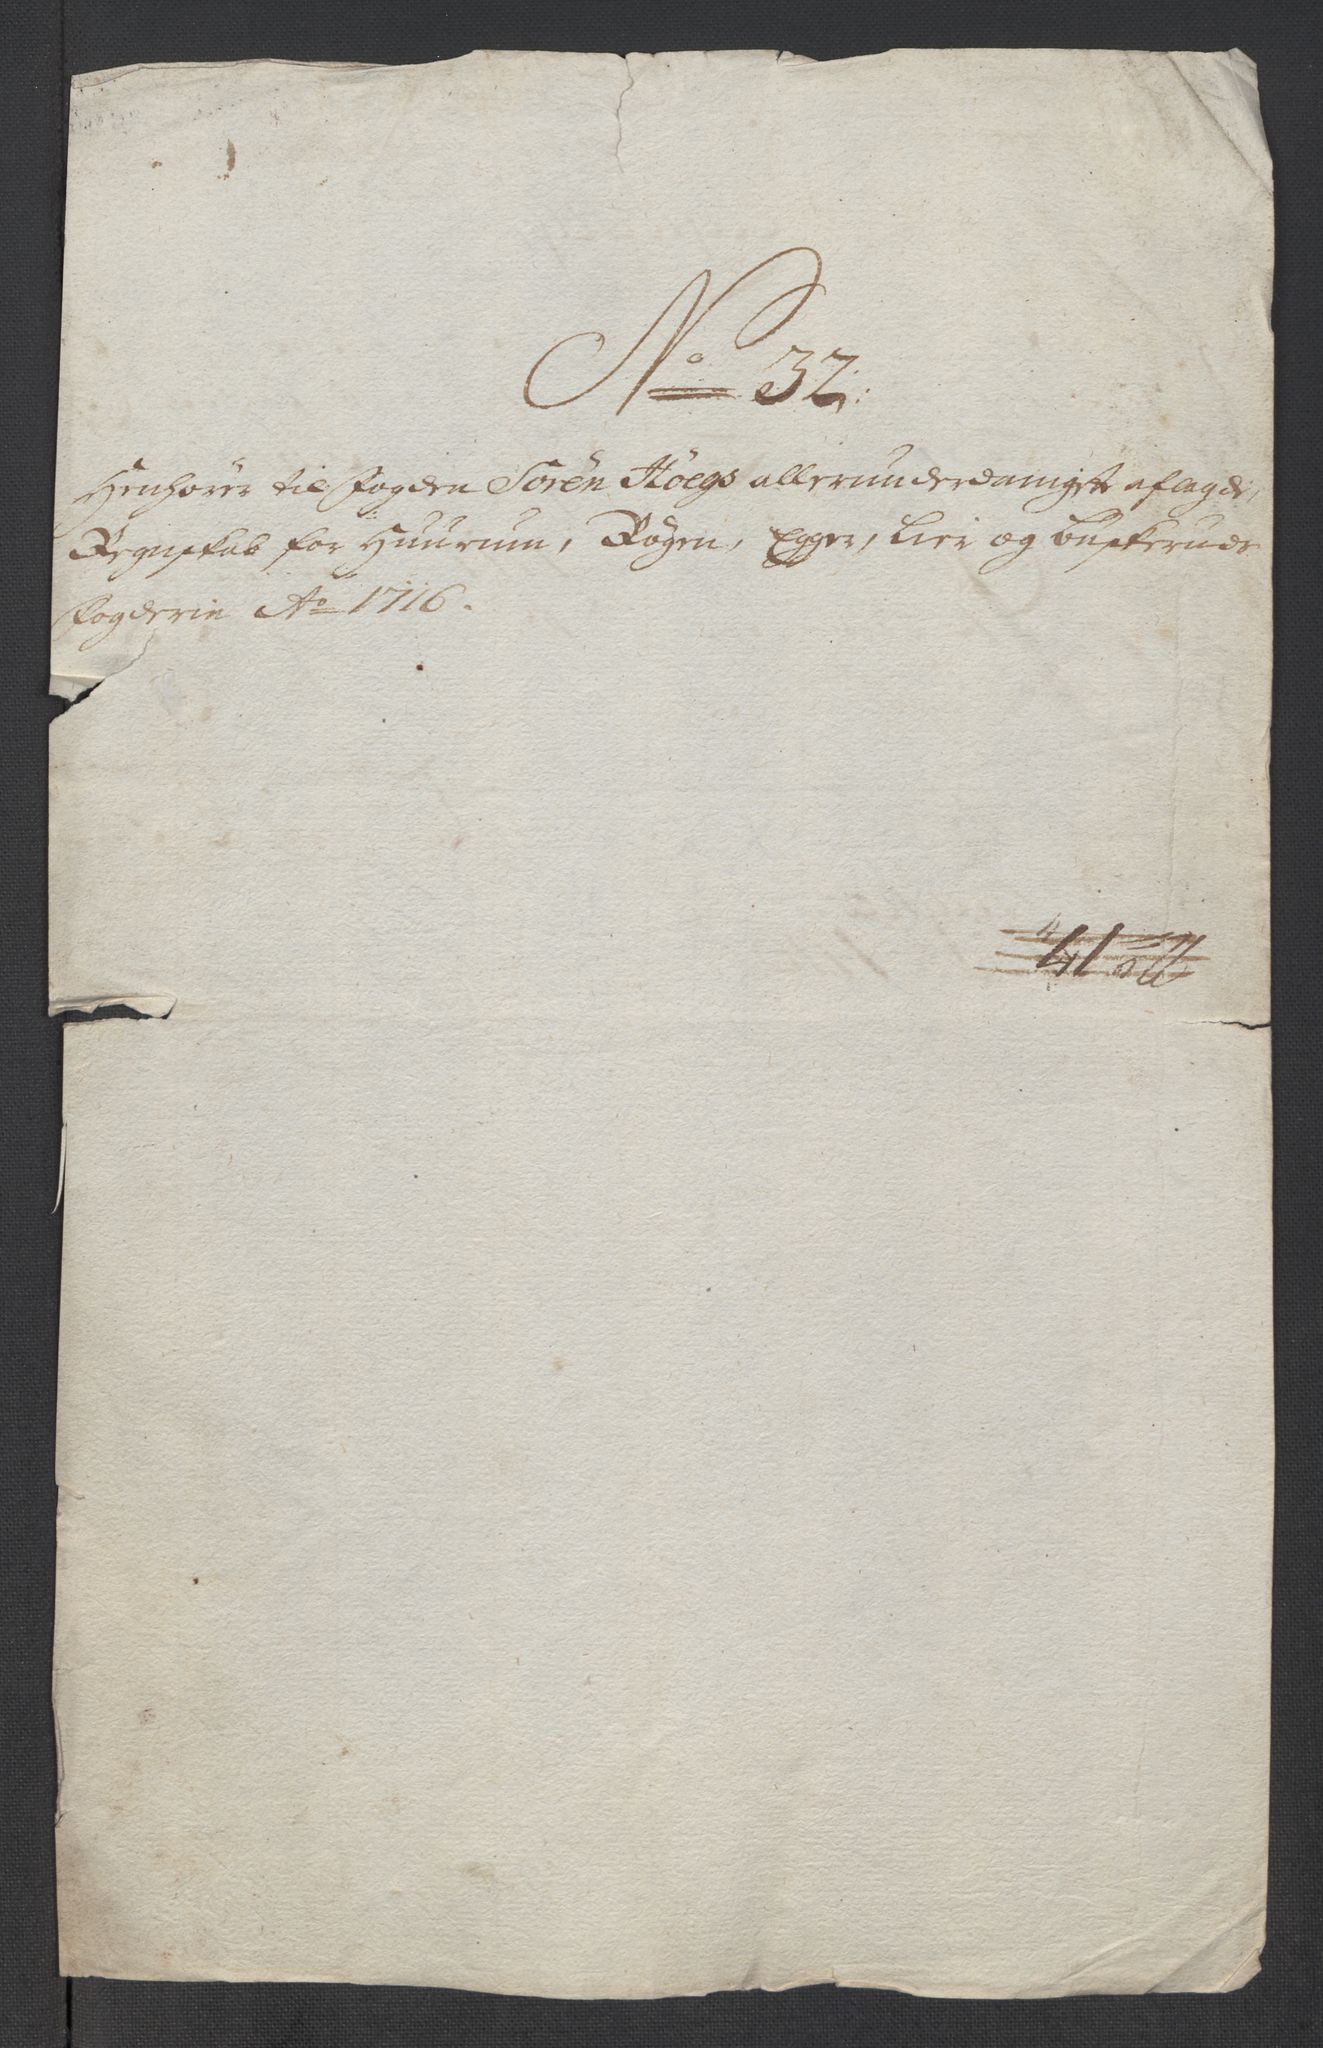 No 32.
Henhører til fogden Sören Höegs allerunderdanigste aflagde
Regnskab for Huurum, Røgen, Egger, Lier og Buskeruds
fogderie Ao 1716.